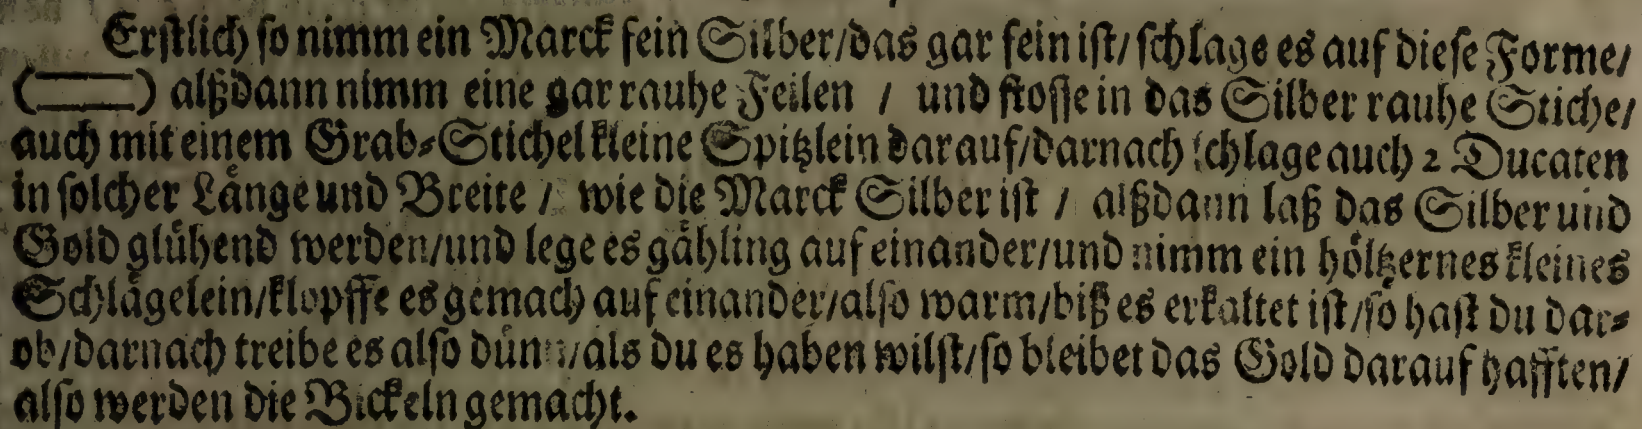 Erſtlich ſo nimm ein Marck fein Silber/das gar fein iſt/ ſchlage es auf dieſe Forme/
( ) alßdann nimm eine gar rauhe Feilen / und ſtoſſe in das Silber rauhe Stiche/
auch mit einem Grab-Stichel kleine Spitzlein darauf/darnach ſchlage auch 2 Ducaten
in ſolcher Långe und Breite / wie die Marck Silber iſt / alßdann laß das Silber und
Gold glůhend werden/und lege es gåhling auf einander/und nimm ein hőltzernes kleines
Schlågelein/klopffe es gemach auf einander/alſo warm/biß es erkaltet iſt/ſo haſt du dar-
ob/darnach treibe es alſo důnn/als du es haben wilſt/ſo bleibet das Gold darauf hafften/
alſo werden die Bickeln gemacht.